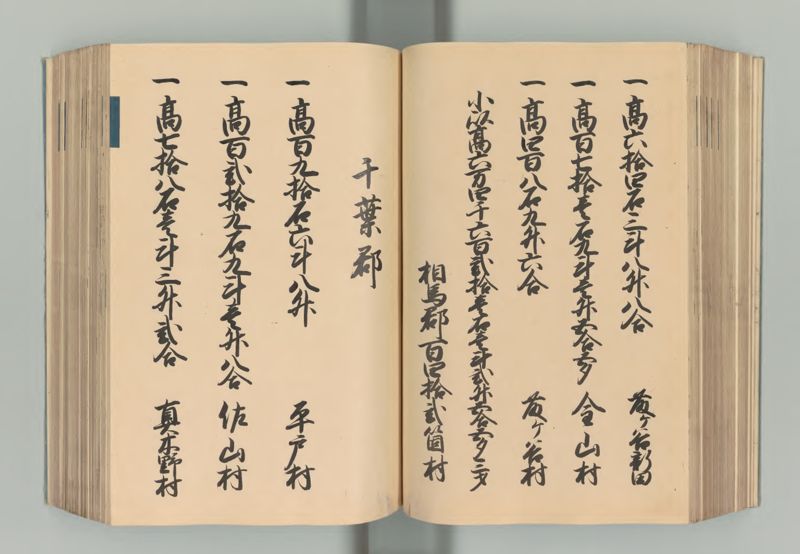 一 高六拾四石三斗八升八合 藤ケ谷新田
一 高百七拾壱石九斗壱升五合五夕 金山村
一 高四百八石九升六合 藤ケ谷村
小以高六万四千六百弐拾壱石壱斗弐升五合五夕三才
相馬郡百四拾弐箇村
千葉郡
一 高百九拾石六斗八升 平戸村
一 高百弐拾九石九斗壱升八合 佐山村
一 高七拾八石壱斗三升弐合 真木野村